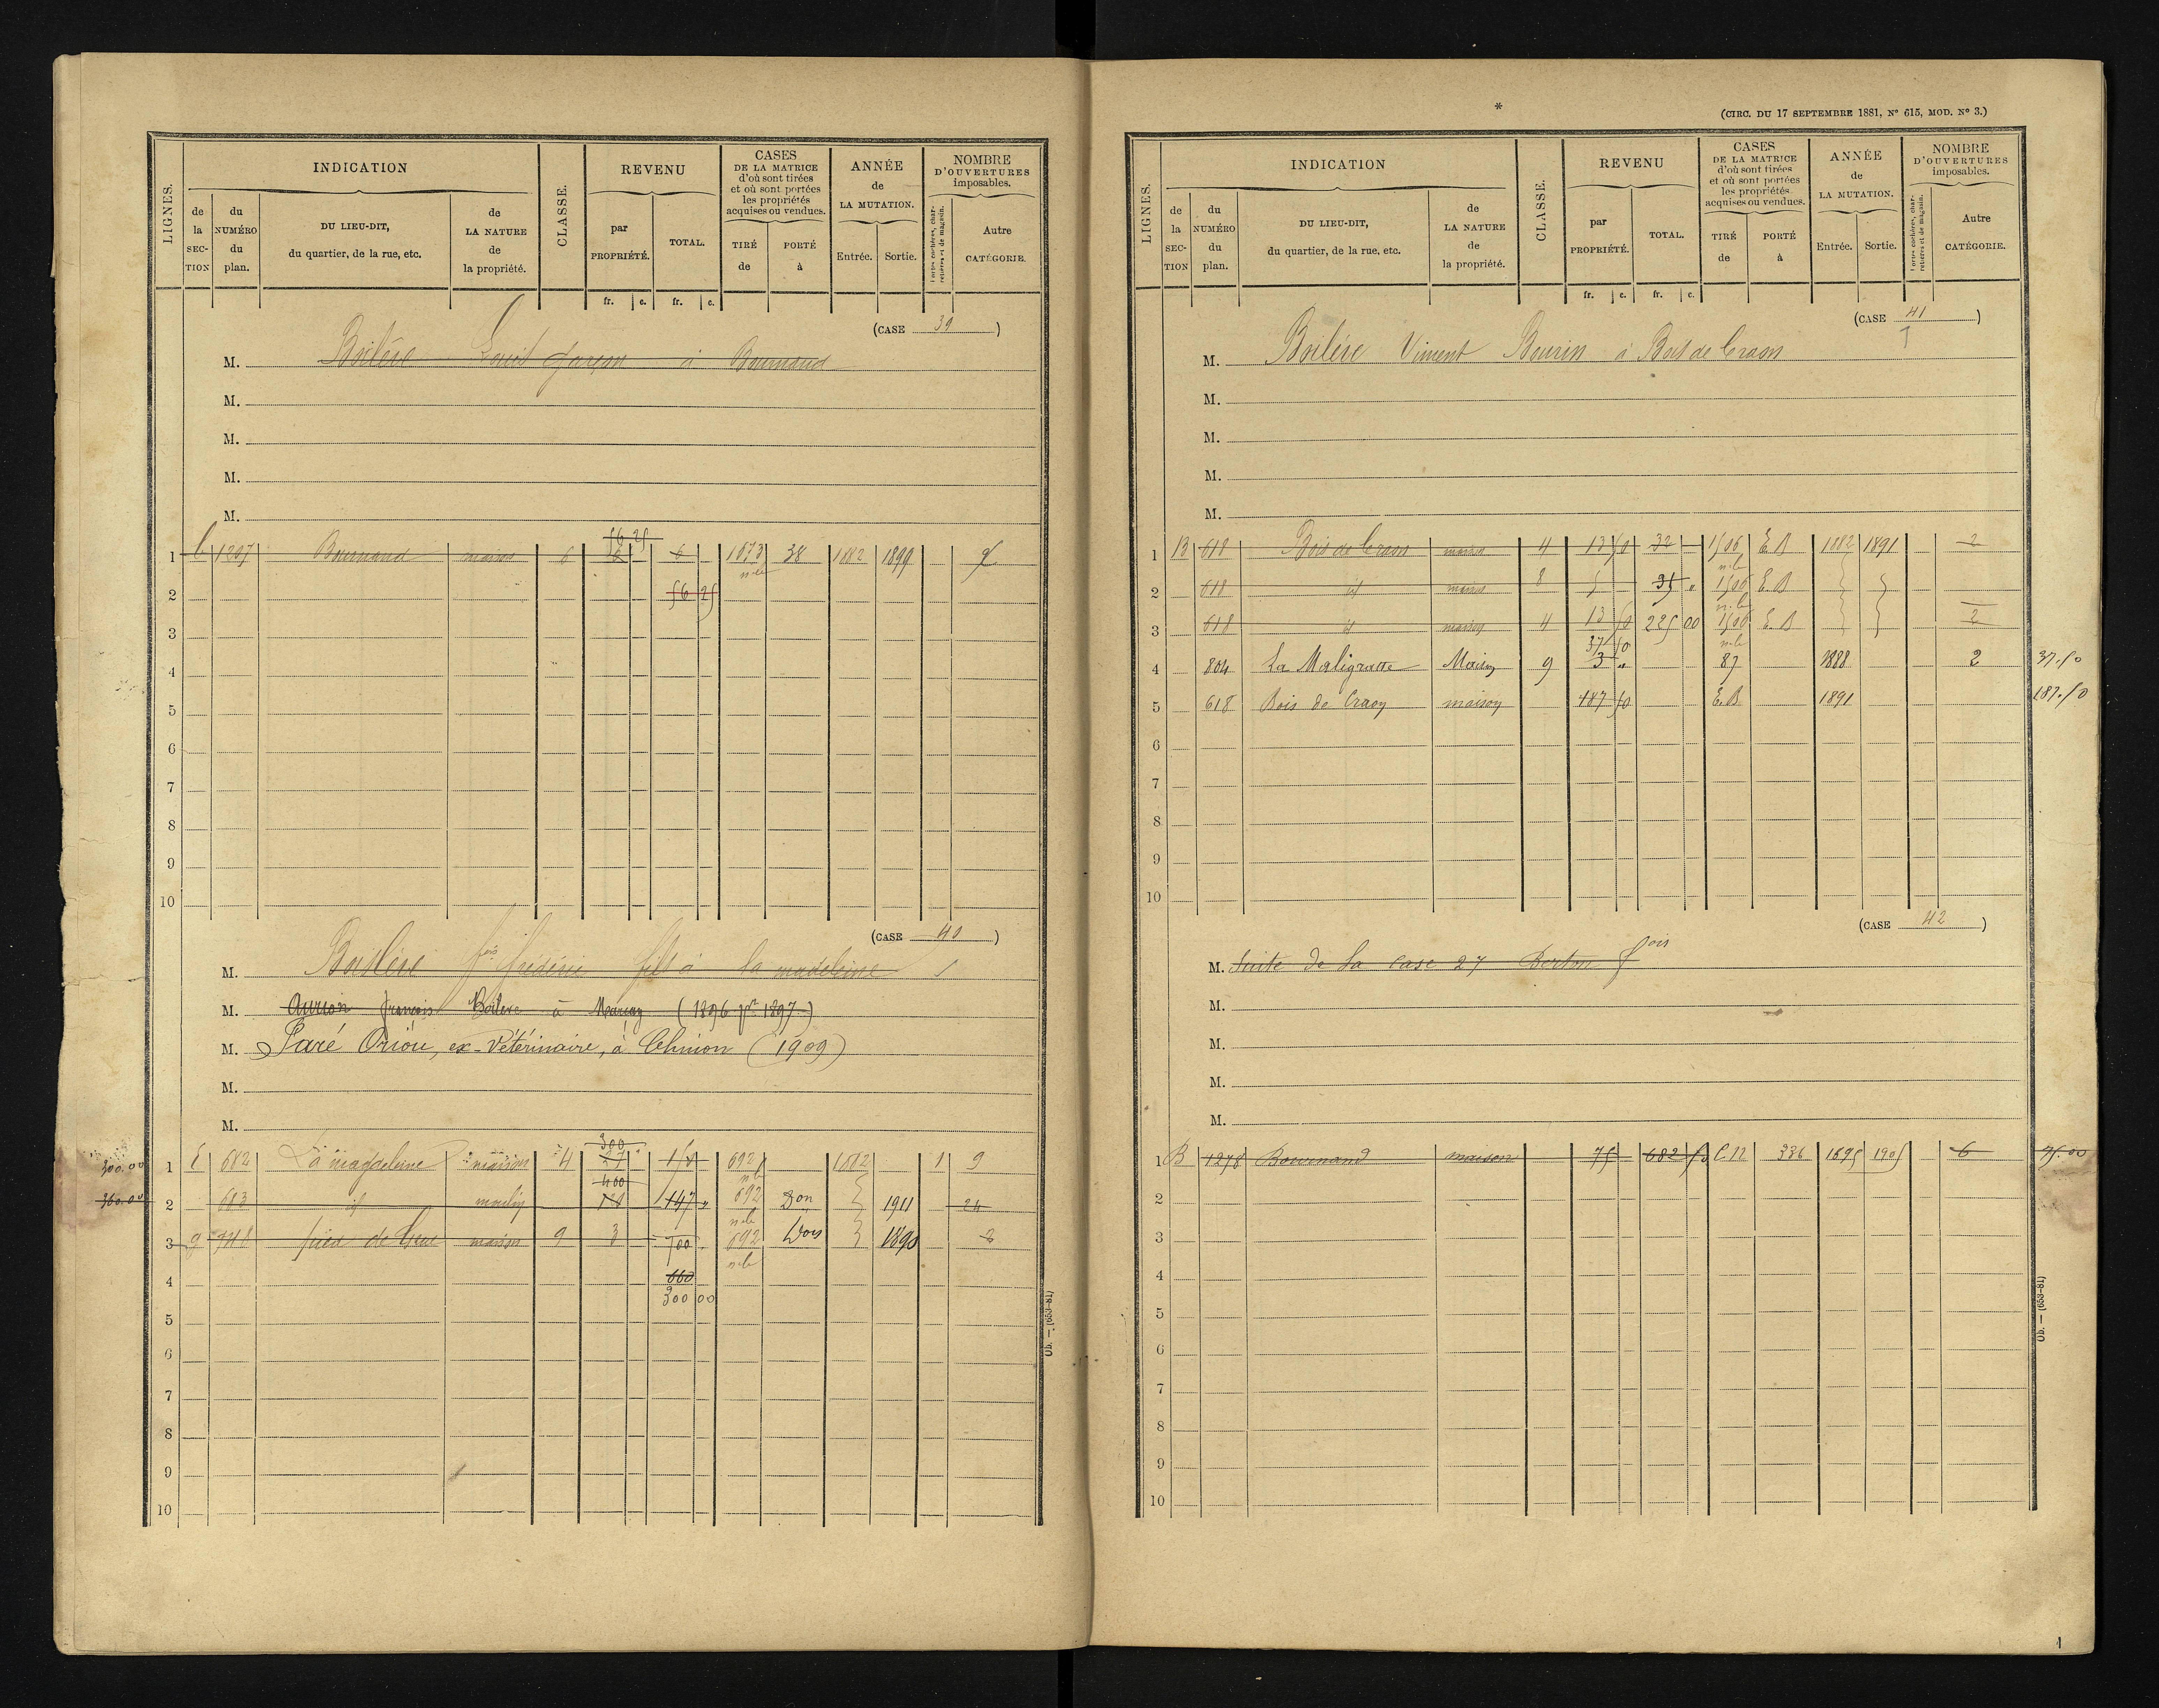 LIGNES.
INDICATION
de la SECTION
du NUMÉRO du plan.
DU LIEU-DIT, du quartier, de la rue, etc.
de LA NATURE de la propriété.
CLASSE.
REVENU
par PROPRIÉTÉ.
TOTAL.
CASES DE LA MATRICE d'où sont tirées et où sont portées les propriétés acquises ou vendues.
TIRÉ de
PORTÉ à
ANNÉE de LA MUTATION.
Entrée.
Sortie.
NOMBRE D'OUVERTURES imposables.
Portes cochères, charretières et de magasin.
Autre CATÉGORIE.
fr. c. fr. c.
(CASE 39)
M. Boilève Louis garçon à Bournand
M.
M.
M.
M.
56 25
1 C 1297 Bournand maison 6 6 6 1073 38 1882 1899 2
n.le
2 56 25
3
4
5
6
7
8
9
10
(CASE 40)
M. Boilève fois frédéric fils à la madeleine
M. Aurion françois Boilève à Marçay (1896 pr 1897)
M. Paré Oriou, ex-Vétérinaire, à Chinon (1909)
M.
M.
300
300.00 1 E 682 La magdeleine maison 4 27 692 1882 1 9
400 n.le
360.00 2 683 id moulin 147 " 692 Don 1911 24
n.le
3 G 748 pied de Grue maison 9 3 700 692 1890 2
n.le
4 660
300 00
5
6
7
8
9
10
Ub. — (659-81)
*
(CIRC. DU 17 SEPTEMBRE 1881, N° 615, MOD. N° 3.)
LIGNES.
INDICATION
de la SECTION
du NUMÉRO du plan.
DU LIEU-DIT, du quartier, de la rue, etc.
de LA NATURE de la propriété.
CLASSE.
REVENU
par PROPRIÉTÉ.
TOTAL.
CASES DE LA MATRICE d'où sont tirées et où sont portées les propriétés acquises ou vendues.
TIRÉ de
PORTÉ à
ANNÉE de LA MUTATION.
Entrée.
Sortie.
NOMBRE D'OUVERTURES imposables.
Portes cochères, charretières et de magasin.
Autre CATÉGORIE.
fr. c. fr. c.
(CASE 41)
M. Boilève Vincent Bourin à Bois de Craon
M.
M.
M.
M.
1 B 618 Bois de Craon maison 4 13 50 32 1506 E.B 1882 1891 2
n.le
2 618 id maison 8 5 35 " 1506 E.B
n.le
3 618 id maison 4 13 50 225 00 1506 E.B 2
37 50 n.le
4 804 La Maligratte Maison 9 3 " 87 1888 2 37.50
5 618 Bois de Craon maison 187 50 E.B. 1891 187.50
6
7
8
9
10
(CASE 42)
M. Suite de la case 27 Berton fois
M.
M.
M.
M.
1 B 1278 Bournand maison 75 682 50 C.N 336 1895 1905 6 75.00
2
3
4
5
6
7
8
9
10
Ub. — (659-81)